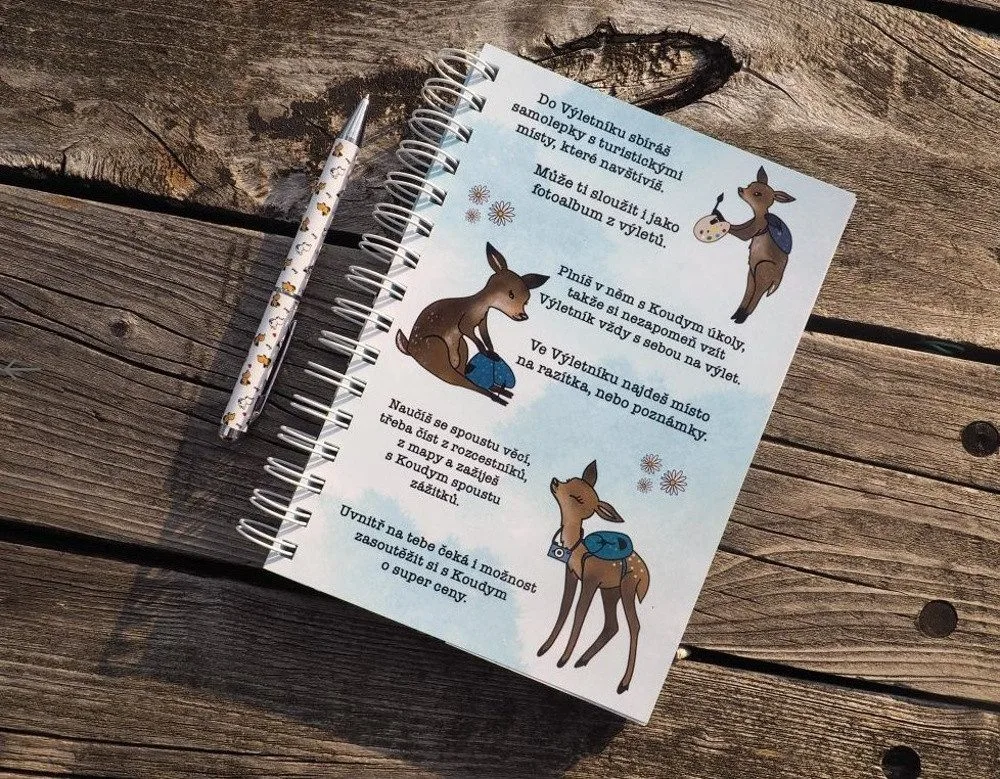 Do Výletníku sbíráš
samolepky s turistickými
místy, které navštívíš.
Může ti sloužit i jako
fotoalbum z výletů.
Plníš v něm s Koudym úkoly,
takže si nezapomeň vzít
Výletník vždy s sebou na výlet.
Ve Výletníku najdeš místo
na razítka, nebo poznámky.
Naučíš se spoustu věcí,
třeba číst z rozcestníků,
z mapy a zažiješ
s Koudym spoustu
zážitků.
Uvnitř na tebe čeká i možnost
zasoutěžit si s Koudym
o super ceny.